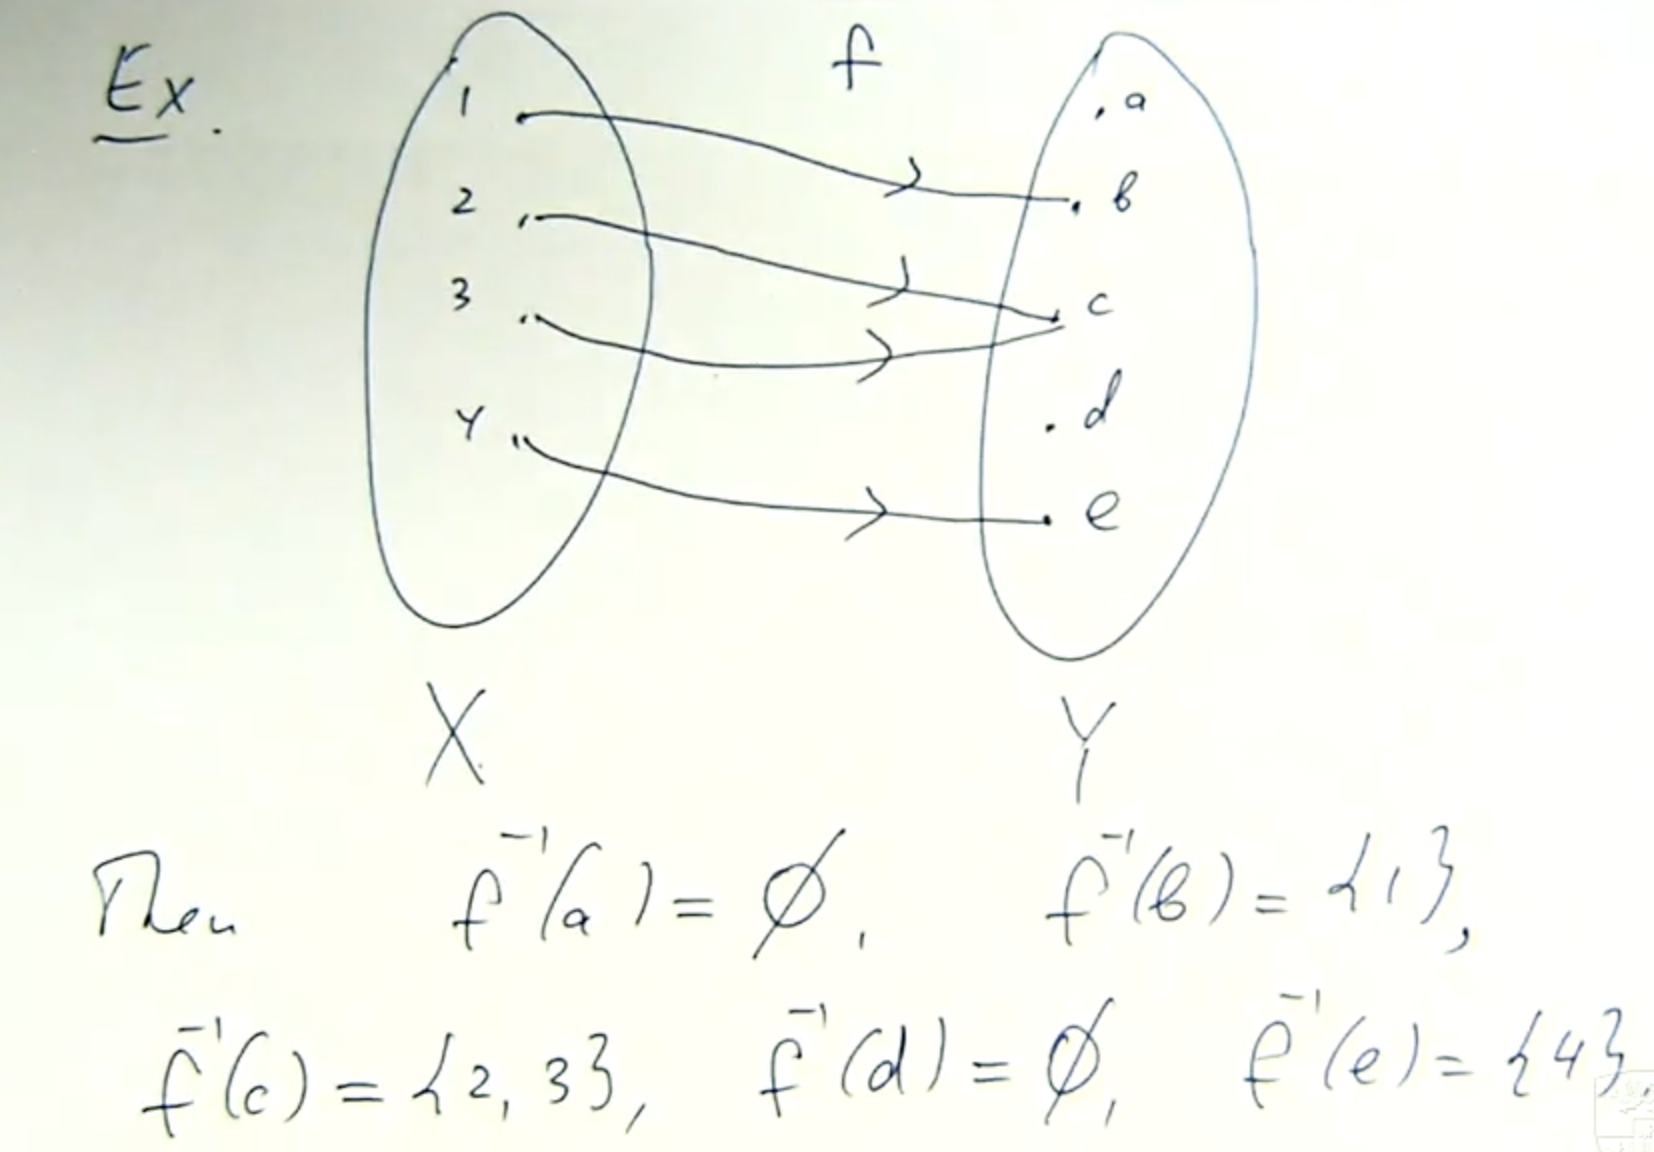 Ex.
f
1
2
3
4
a
b
c
d
e
X Y
Then f⁻¹(a) = ∅, f⁻¹(b) = {1},
f⁻¹(c) = {2, 3}, f⁻¹(d) = ∅, f⁻¹(e) = {4}.